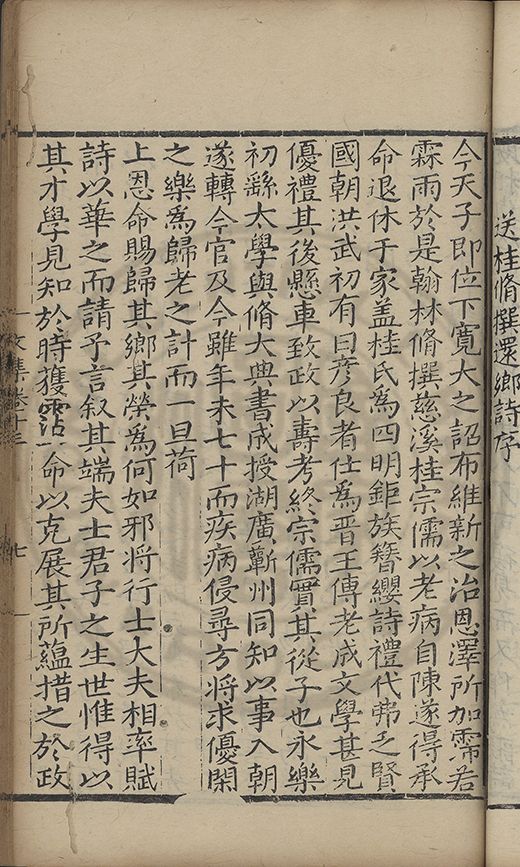 送桂脩撰還鄉詩序
今天子即位下寬大之詔布維新之治恩澤所加霈若
霖雨於是翰林脩撰慈溪桂宗儒以老病自陳遂得承
命退休于家盖桂氏為四明鉅族簪纓詩禮代弗乏賢
國朝洪武初有曰彥良者仕為晋王傅老成文學甚見
優禮其後懸車致政以壽考終宗儒實其從子也永樂
初繇太學與脩大典書成授湖廣蘄州同知以事入朝
遂轉今官及今雖年未七十而疾病侵尋方將求優閑
之樂為歸老之計而一旦荷
上恩命賜歸其鄉其榮為何如邪將行士大夫相率賦
詩以華之而請予言叙其端夫士君子之生世惟得以
其才學見知於時獲霑一命以克展其所蘊措之於政
文集卷十三
七